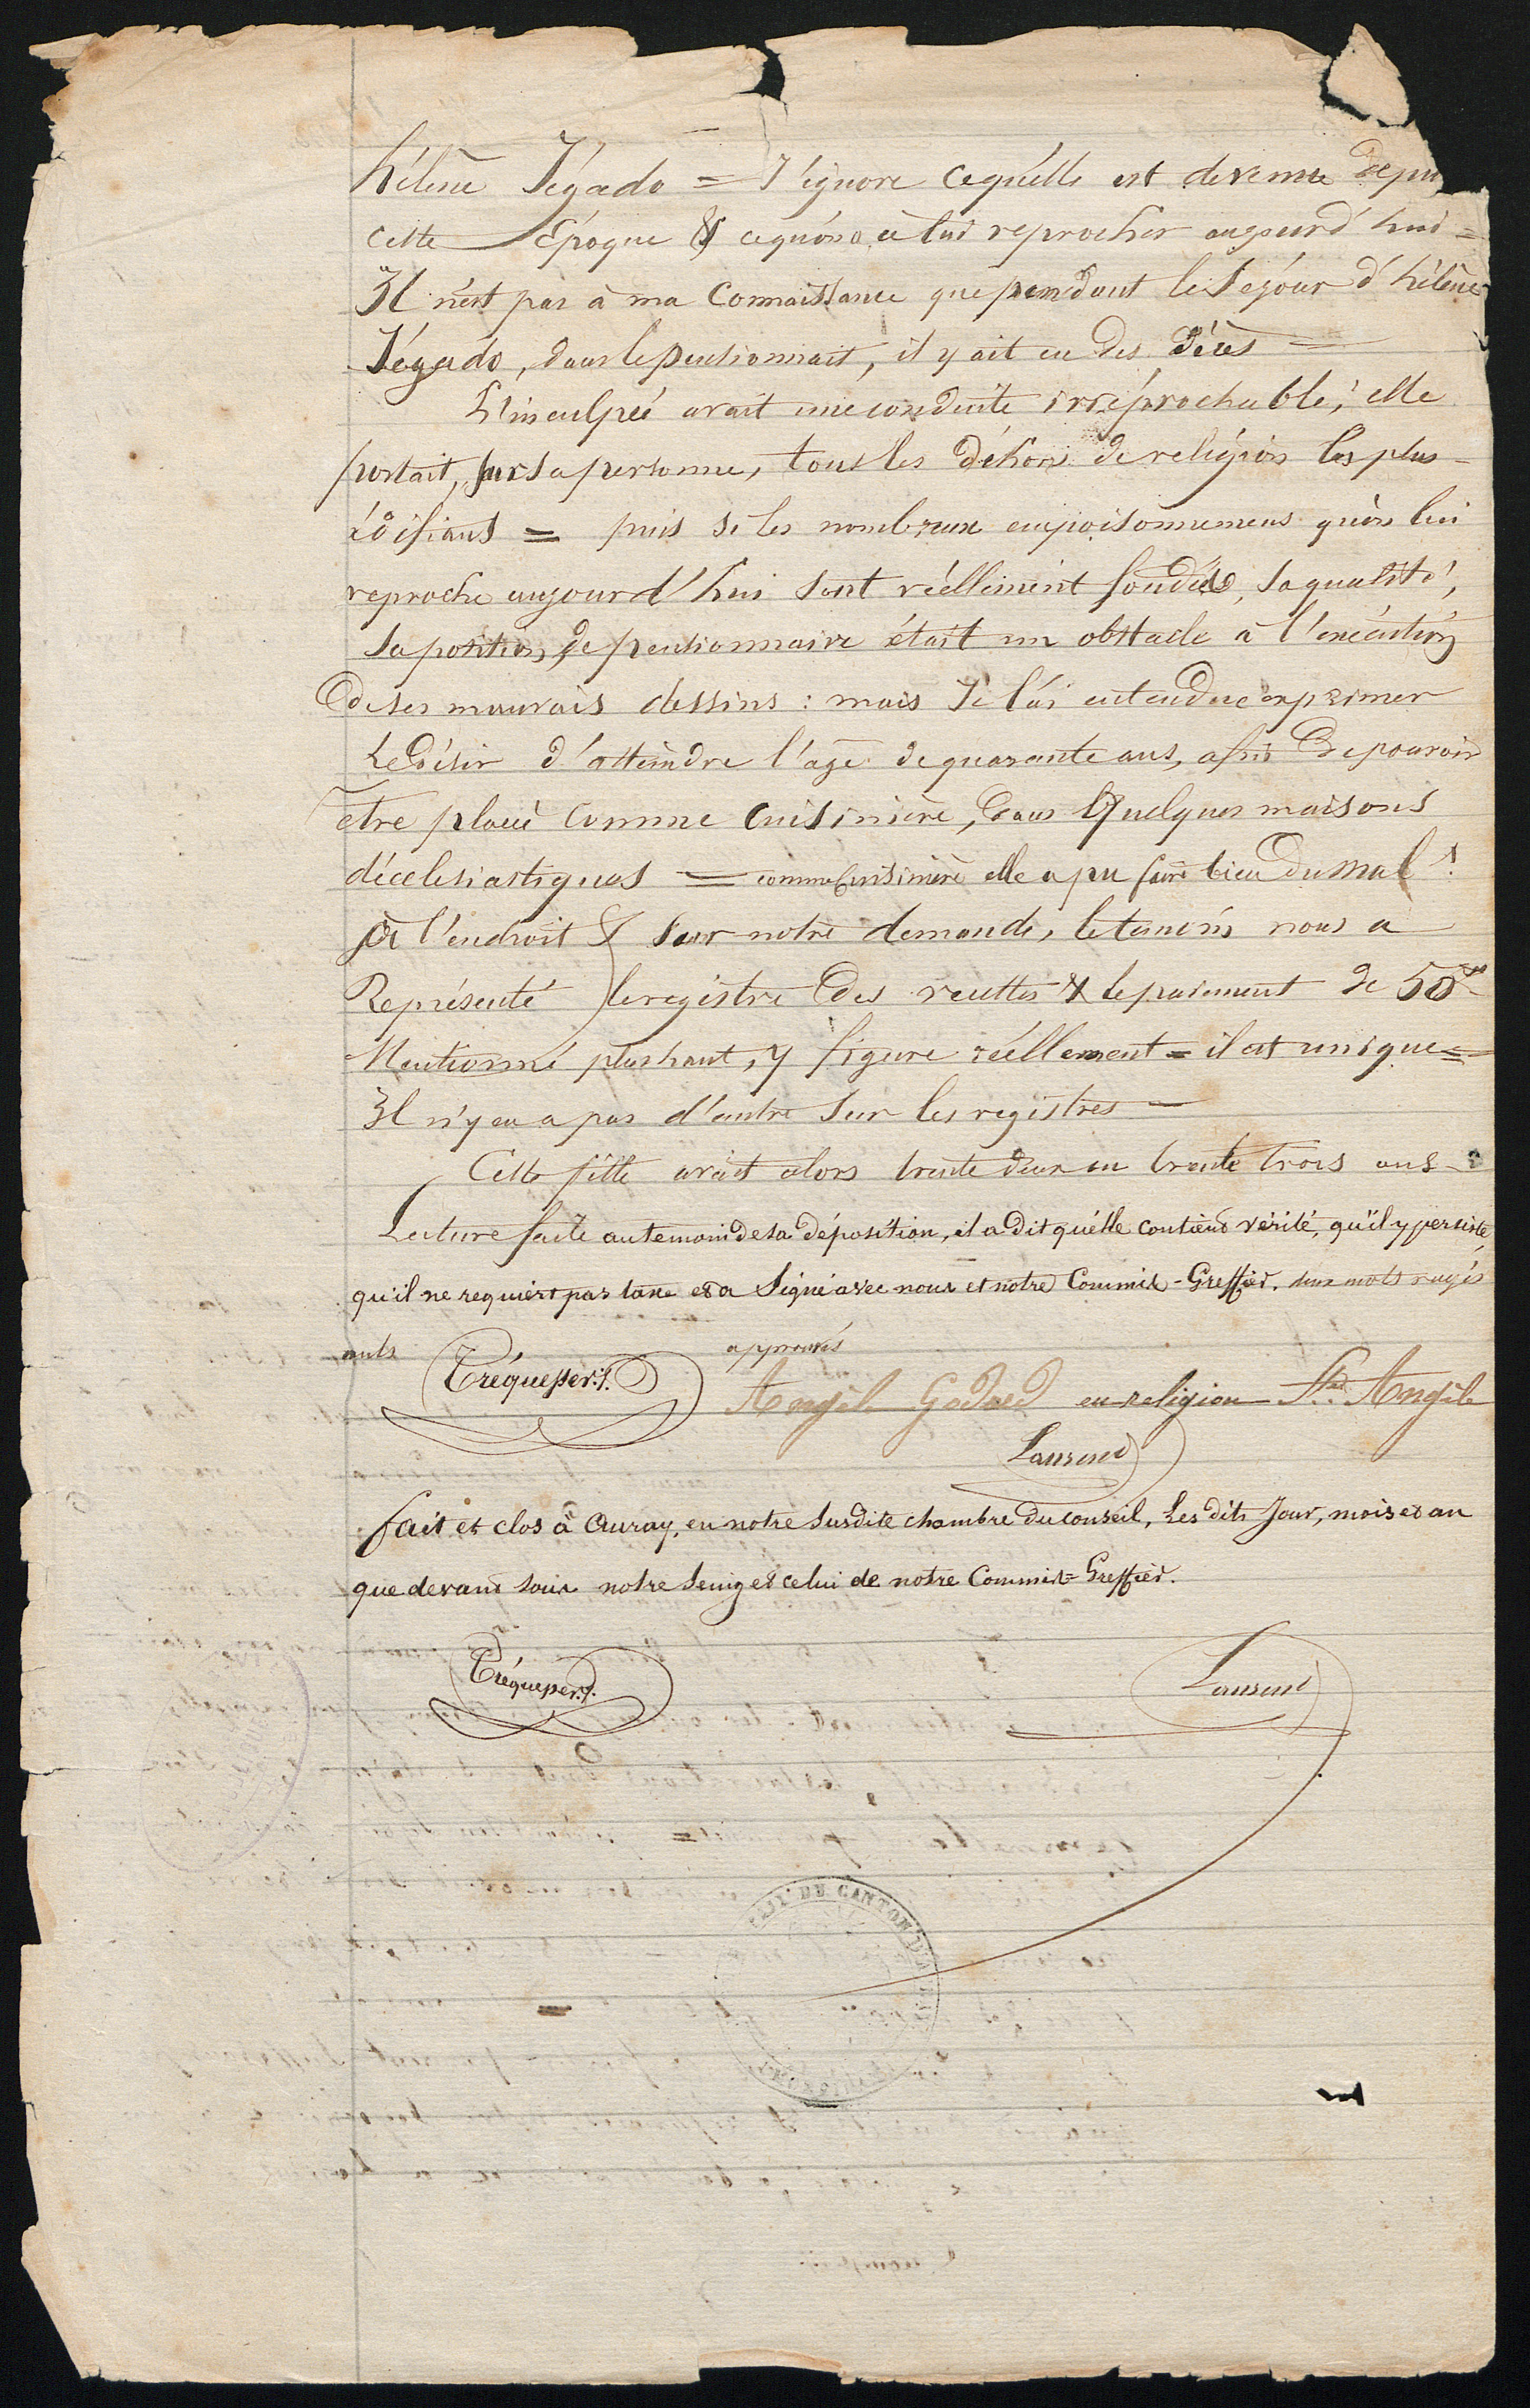 hélène Jégado = J'ignore ce qu'elle est devenue depui
cette Époque & ce qu'on a à lui reprocher aujourd'hui =
Il n'est pas à ma Connaissance que pendant le Séjour d'hélène
Jégado, dans le pensionnait, il y ait eu des décès —
L'inculpée avait une conduite irréprochable; elle
portait, sur sa personne, tous les déhors de religion les plus
édifians = puis si les nombreux empoisonnemens qu'on lui
reproche aujourd'hui sont réellement fondés, sa qualité,
sa position de pensionnaire était un obstacle à l'exécution
de ses mauvais dessins : mais Je l'ai entendue exprimer
le désir d'atteindre l'age de quarante ans, afin de pouvoir
être placé comme Cuisinière, dans Quelques maisons
d'écclesiastiques = comme Cuisinière elle a pu faire bien du mal !
à l'endroit & Sur notre demande, le temoin nous a
Représenté le registre des recettes & le paiement de 50 fs
Mentionné plus haut, y figure réellement = il est unique =
Il n'y en a pas d'autre Sur les registres —
Cette fille avait alors trente deux ou trente trois ans —
Lecture faite au temoin de sa déposition, il a dit qu'elle contient vérité, qu'il y persiste,
qu'il ne requiert pas taxe et a Signé avec nous et notre Commis-Greffier. deux mots rayés
nuls approuvés
Angèle Godard en religion Sr. Angèle
Tréquesser. J.
Laurent
fait et clos à Auray, en notre Susdite chambre du conseil, Les dits Jour, mois et an
que devant sous notre Seing et celui de notre Commis-Greffier.
Tréquesser. J.
Laurent
DE CANTON D'A